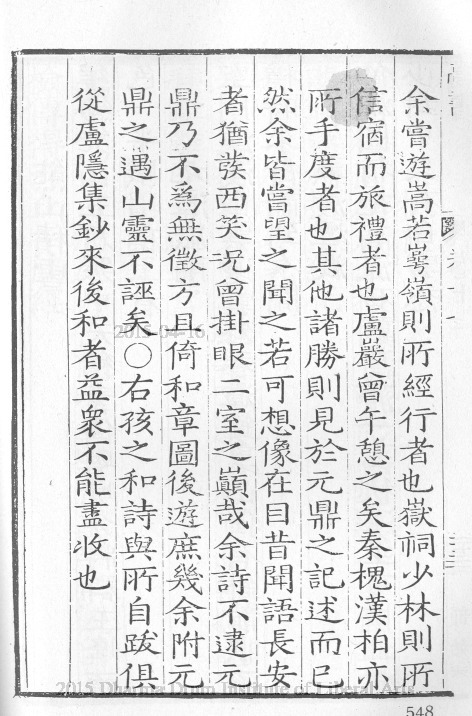 余嘗遊嵩若蕚嶺則所經行者也嶽祠少林則所
信宿而旅禮者也盧巖曾午憩之矣秦槐漢柏亦
所手度者也其他諸勝則見於元鼎之記述而已
然余皆嘗望之聞之若可想像在目昔聞語長安
者猶發西笑况曾掛眼二室之巔哉余詩不逮元
鼎乃不爲無徵方且倚和章圖後遊庶幾余附元
鼎之遇山靈不誣矣○右孩之和詩與所自跋俱
從盧隱集鈔來後和者益衆不能盡收也
2015-04-16
548